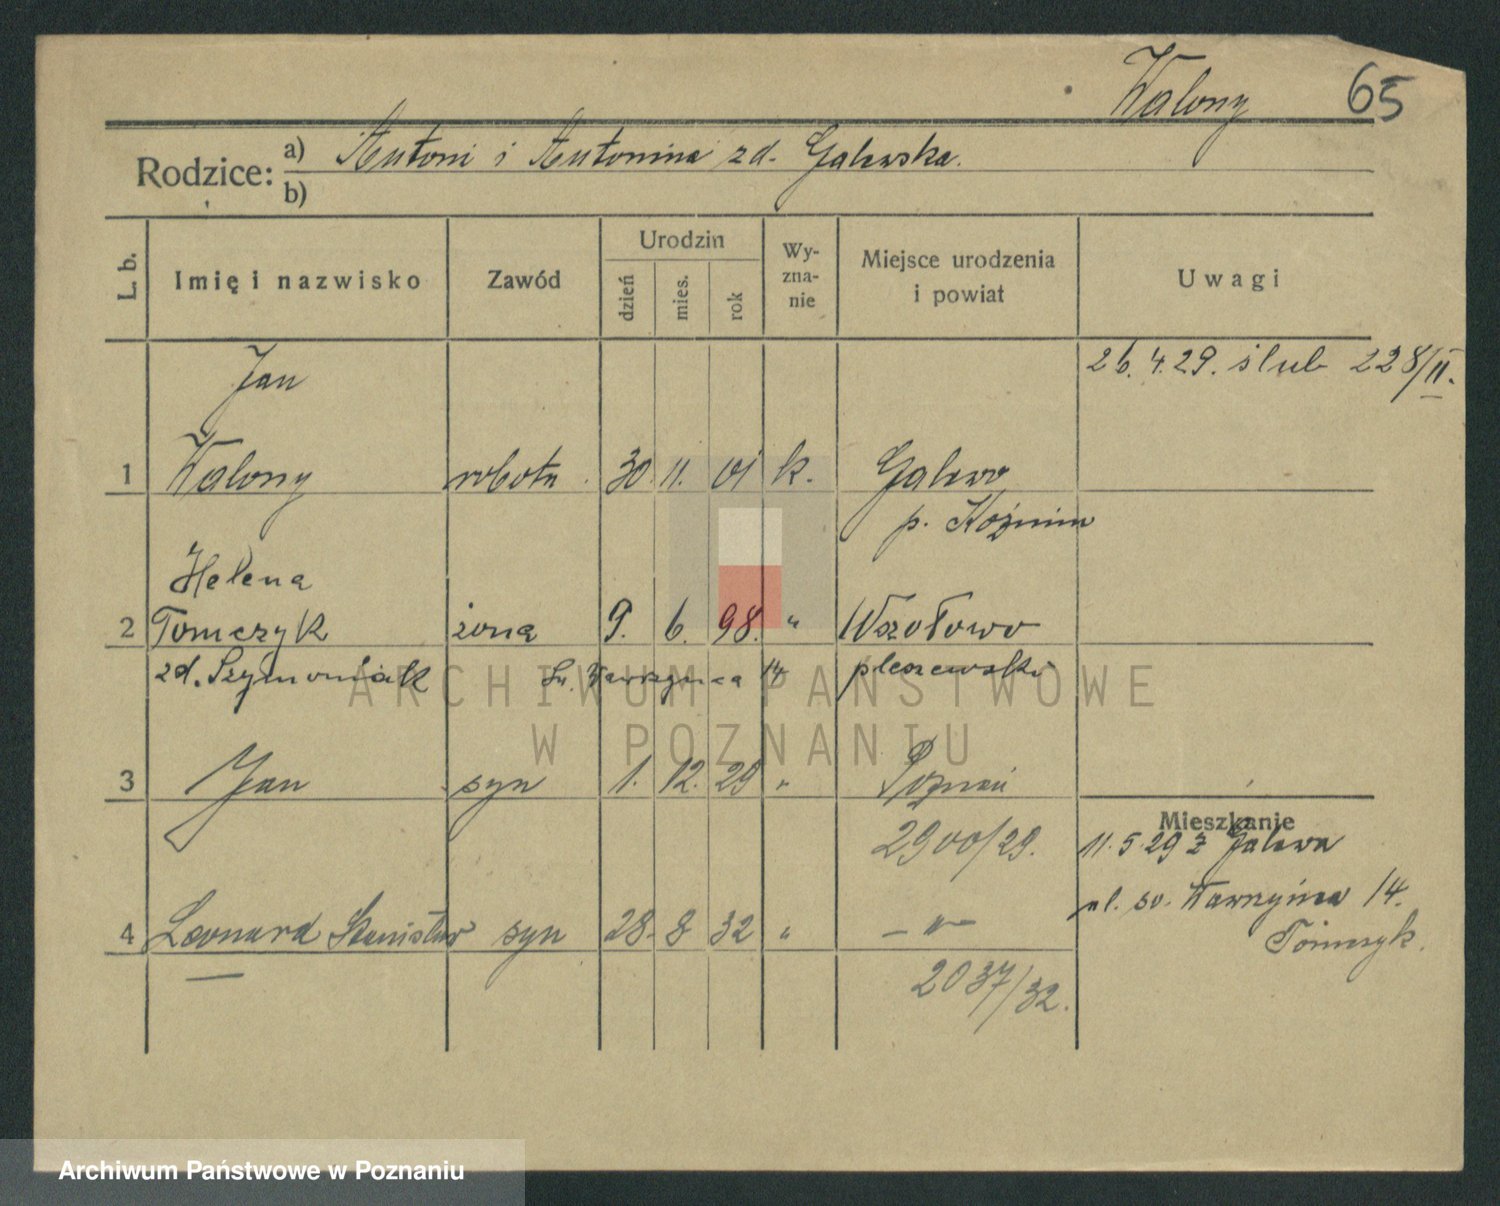 Walony 65
Rodzice: a) Antoni i Antonina zd. Galewska.
b)
L. b. Imię i nazwisko Zawód Urodzin dzień mies. rok Wy-zna-nie Miejsce urodzenia i powiat Uwagi
26. 4. 29. ślub 228/II.
Jan
1 Walony robotn. 30. 11. 01 k. Galewo
p. Koźmin
Helena
2 Tomczyk żona 9. 6. 98. " Wszołowo
zd. Szymoniak Św. Wawrzyńca 14 pleszewski
3 Jan syn 1. 12. 29 " Poznań
2900/29.
Mieszkanie
11. 5. 29 z Galewa
ul. św. Wawrzyńca 14.
4 Leonard Stanisław syn 28. 8 32 " — " —
Tomczyk.
2037/32.
ARCHIWUM PAŃSTWOWE
W POZNANIU
Archiwum Państwowe w Poznaniu